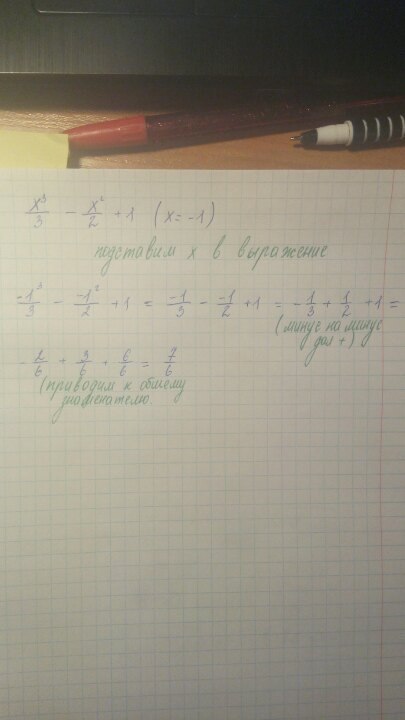 x³/3 - x²/2 + 1 (x = -1)
подставим x в выражение
-1³/3 - -1²/2 + 1 = -1/3 - -1/2 + 1 = -1/3 + 1/2 + 1 =
(минус на минус
дал +)
-2/6 + 3/6 + 6/6 = 7/6
(приводим к общему
знаменателю.